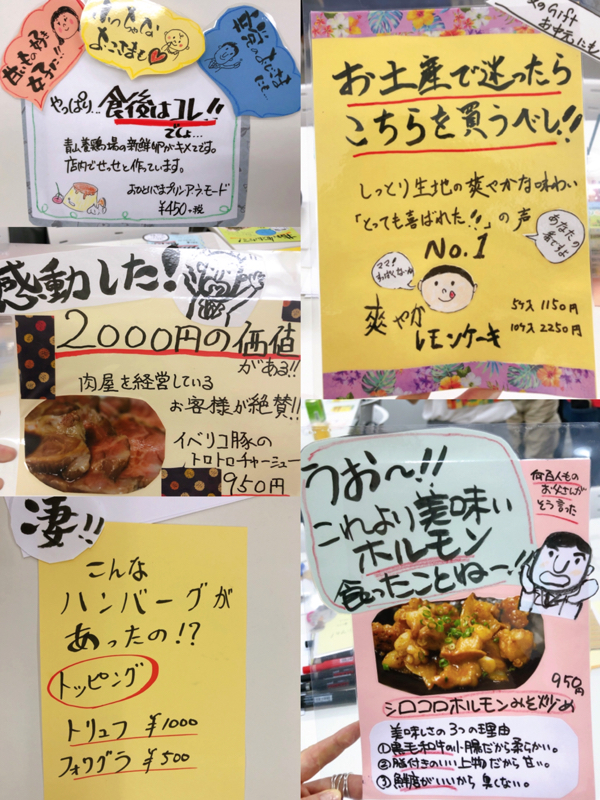 甘いもの好き
女子が!!
ぷっちゃけ
甘党の
やっぱり…食後はコレ!!
でしょ…
青山養鶏場の新鮮卵がキメてです。
店内でせっせと作っています。
おひとにさまプリンアラモード
¥450+税
夏のGift
お中元にも
お土産で迷ったら
こちらを買うべし!!
しっとり生地の爽やかな味わい
「とっても喜ばれた!!」の声
No.1
あなたの
番ですよ
ママ!
爽やか
レモンケーキ
5ケ入 1150円
10ケ入 2250円
感動した!
2000円の価値
がある!!
肉屋を経営している
お客様が絶賛!!
イベリコ豚の
トロトロチャーシュー
950円
凄!!
こんな
ハンバーグが
あったの!?
トッピング
トリュフ ¥1000
フォワグラ ¥500
うお〜!!
これより美味い
ホルモン
食ったことねー!!
何百人もの
お父さんが
そう言った
950円
シロコロホルモンみそ炒め
美味しさの3つの理由
①黒毛和牛の小腸だから柔らかい。
②脂付きのいい上物だから甘い。
③鮮度がいいから臭くない。